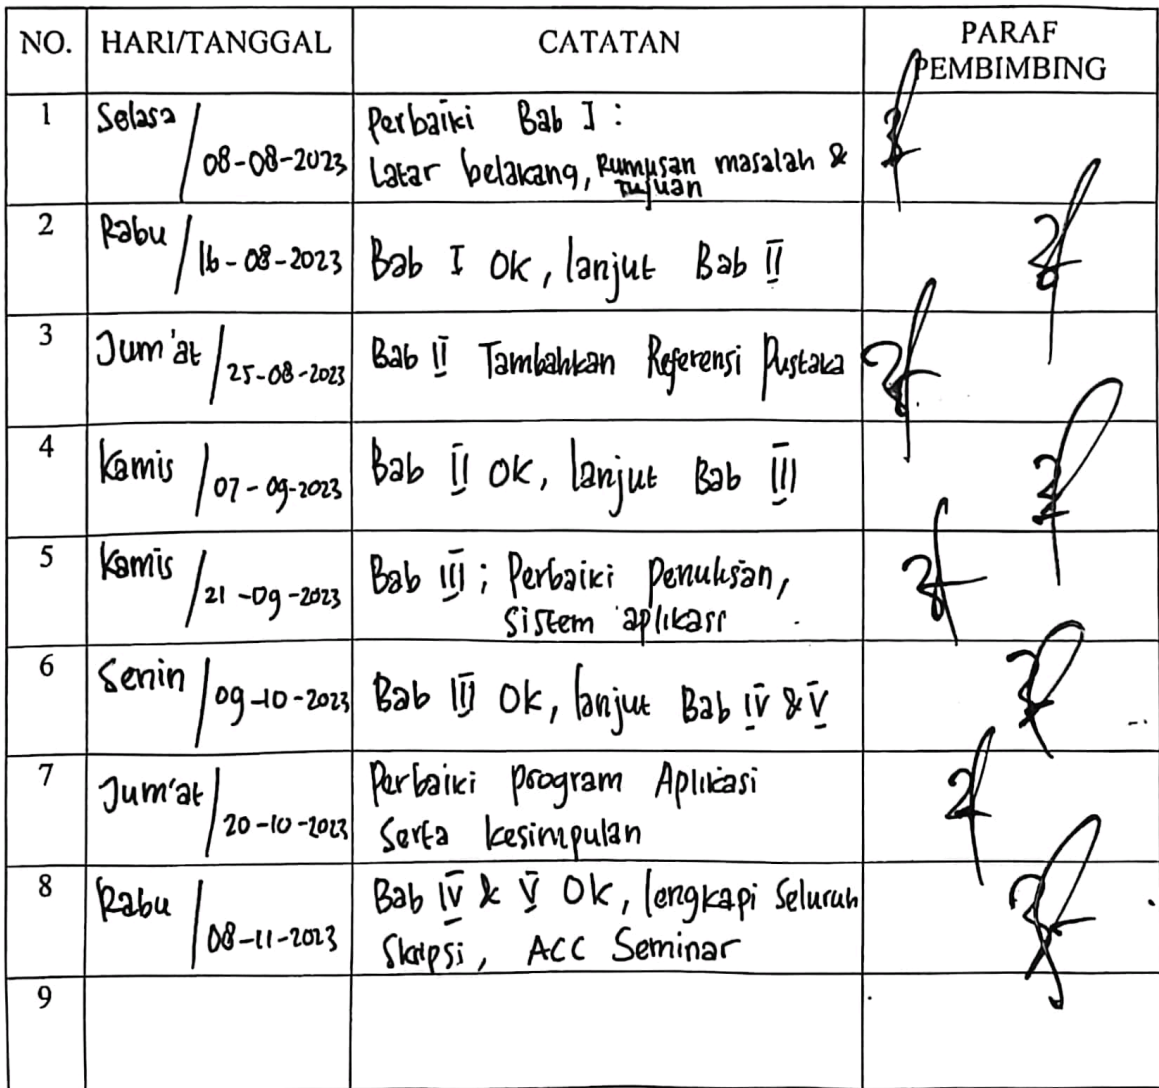 NO. HARI/TANGGAL CATATAN PARAF
PEMBIMBING
1 Selasa / 08-08-2023 Perbaiki Bab I :
Latar belakang, Rumusan masalah &
Tujuan
2 Rabu / 16-08-2023 Bab I OK, lanjut Bab II
3 Jum'at / 25-08-2023 Bab II Tambahkan Referensi Pustaka
4 Kamis / 07-09-2023 Bab II OK, lanjut Bab III
5 Kamis / 21-09-2023 Bab III ; Perbaiki Penulisan,
Sistem aplikasi
6 Senin / 09-10-2023 Bab III OK, lanjut Bab IV & V
7 Jum'at / 20-10-2023 Perbaiki program Aplikasi
Serta kesimpulan
8 Rabu / 08-11-2023 Bab IV & V OK, lengkapi Seluruh
Skripsi, ACC Seminar
9